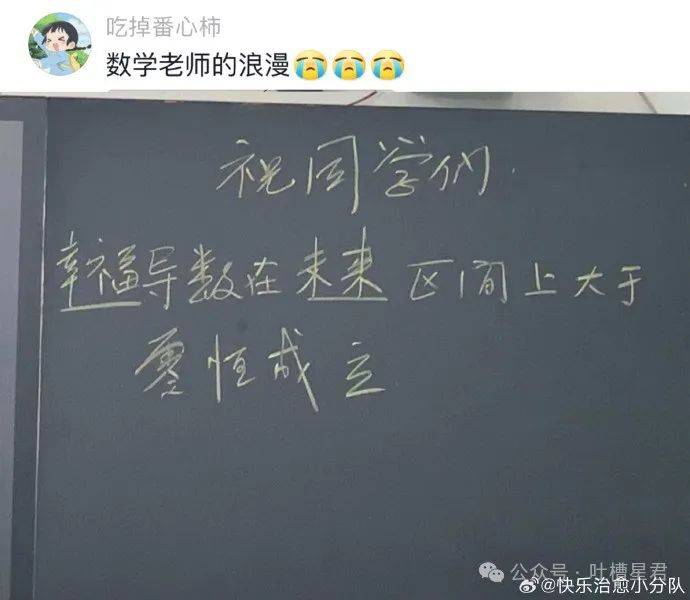 吃掉番心柿
数学老师的浪漫😭😭😭
祝同学们
幸福导数在未来区间上大于
零恒成立
公众号·吐槽星君
@快乐治愈小分队